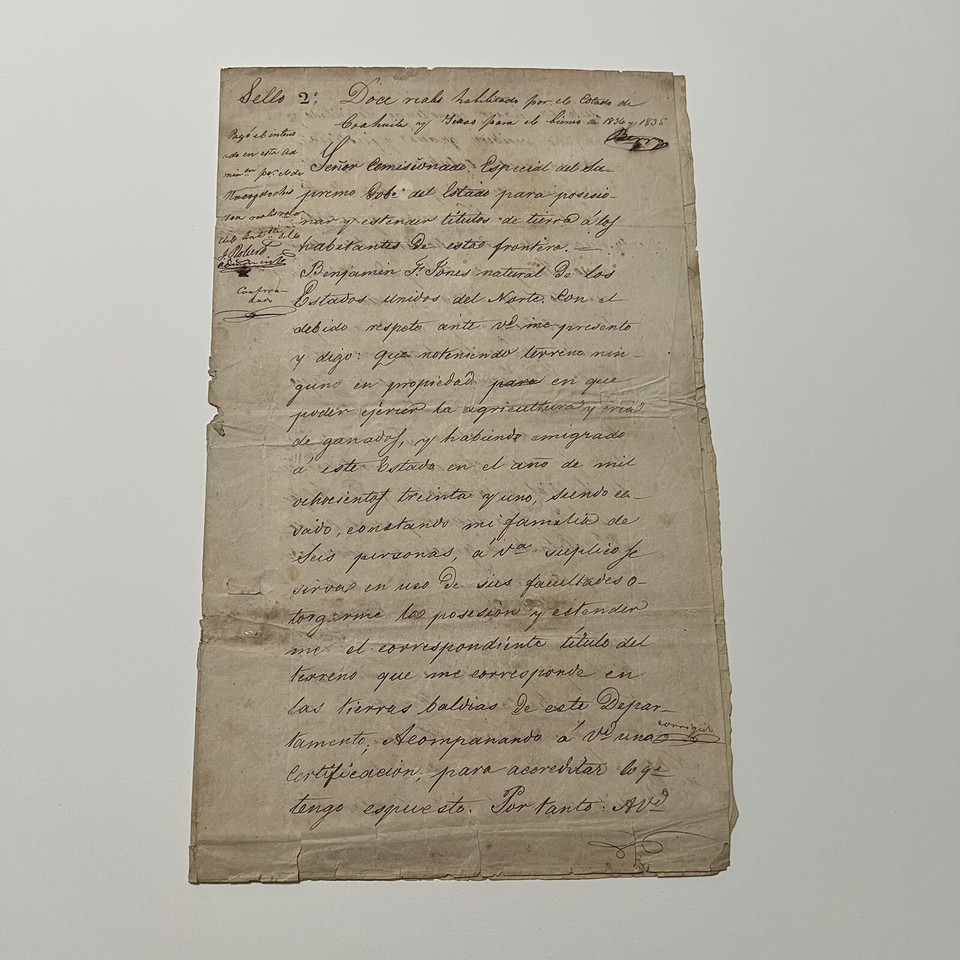 Sello 2º Doce reales habilitado por el Estado de
Coahuila y Texas para el bienio de 1834 y 1835
Pagó el interes
ado en esta Ad
minon por el de
Nacogdoches
los
del Sello
Confron-
tado
Señor Comisionado Especial del Su-
premo Gobo del Estado para posesio-
nar y estender titulos de tierra á los
habitantes de esta frontera. —
Benjamin F. Jones natural de los
Estados unidos del Norte. Con el
debido respeto ante Vd me presento
y digo: que noteniendo terreno nin-
guno en propiedad para en que
poder ejercer la agricultura y cria
de ganados, y habiendo emigrado
á este Estado en el año de mil
ochocientos treinta y uno, siendo ca-
sado, constando mi familia de
Seis personas, á Vd suplico se
sirva en uso de sus facultades o-
torgarme la posesion y estender
me el correspondiente título del
terreno que me corresponde en
las tierras baldias de este Depar-
tamento, Acompanando á Vd una
corregido
Certificacion, para acreditar lo qe
tengo espuesto. Por tanto: A Vd